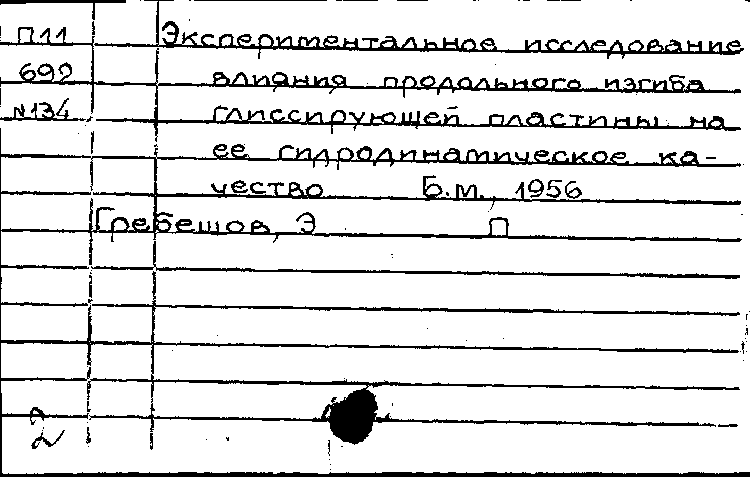 П11 Экспериментальное исследование
692 влияния продольного изгиба
№134 глиссирующей пластины на
ее гидродинамическое ка-
чество Б.м., 1956
Гребешов, Э П
2